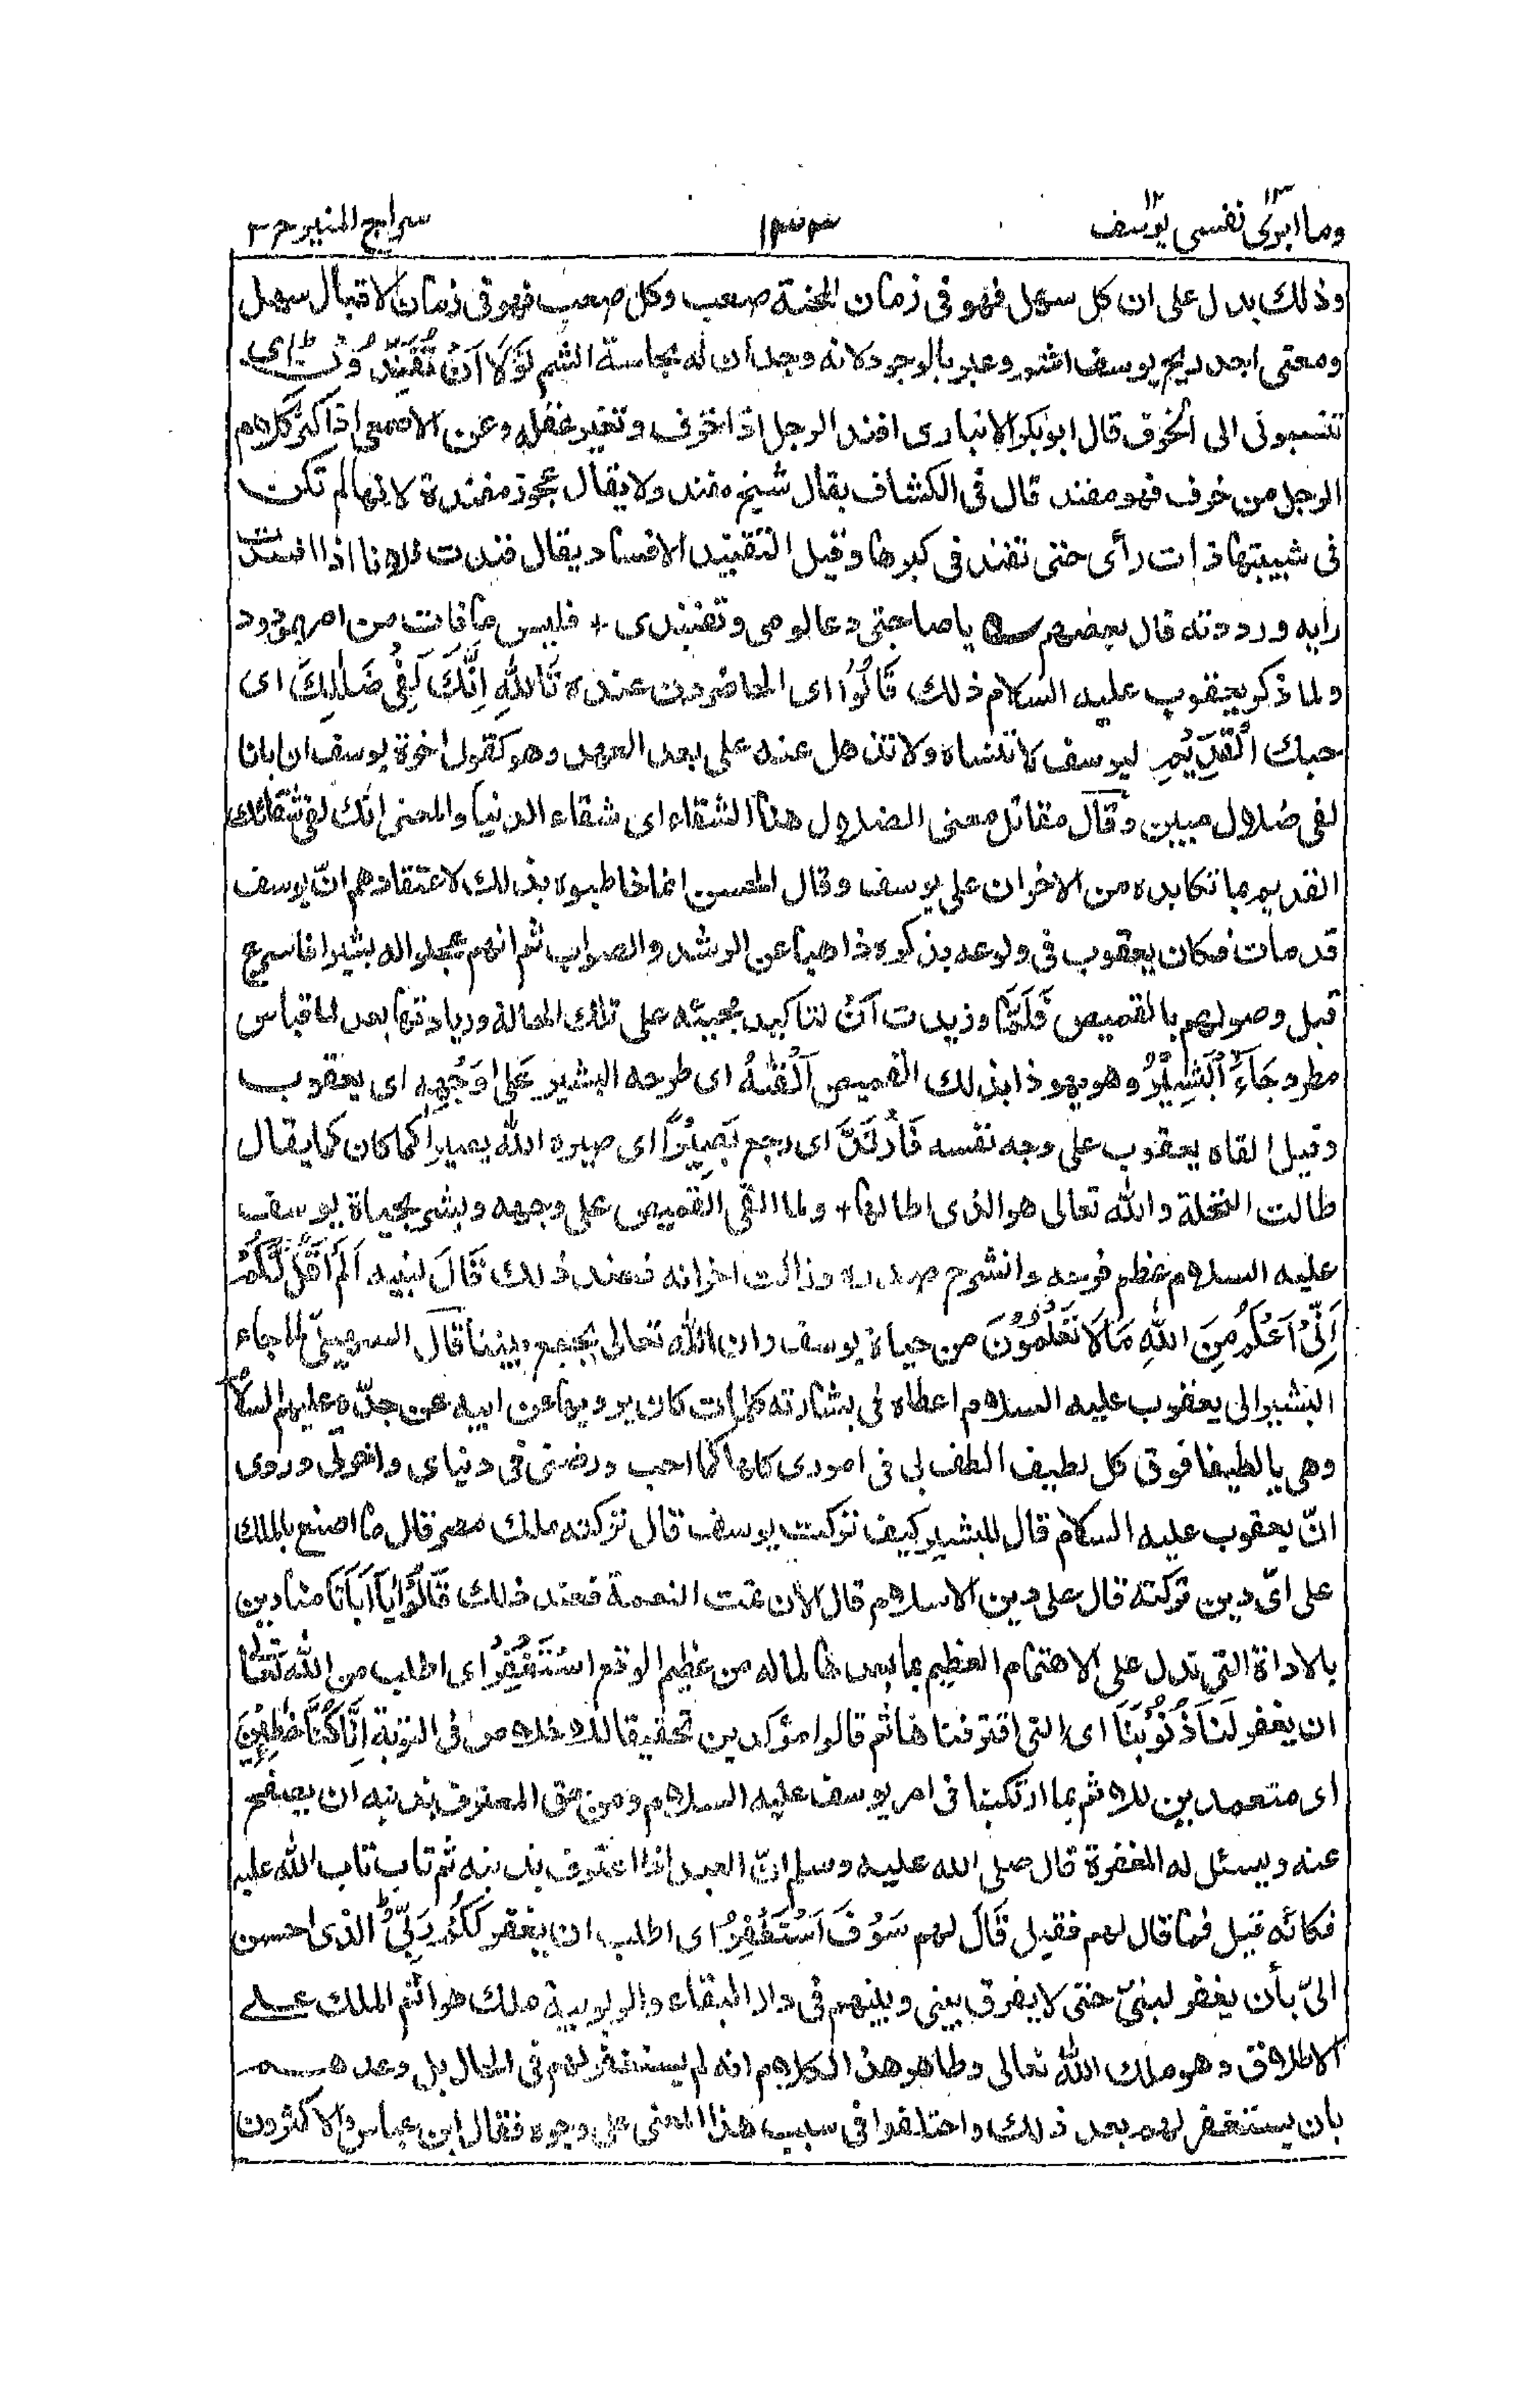 وما ابرئ نفسى ١٣ يوسف ١٢
١٣٣
سراج المنير ج ٢
وذلك يدل على ان كل سهل فهو فى زمان المحنة صعب وكل صعب فهو فى زمان الاقبال سهل
ومعنى اجد ريح يوسف اشم وعبر بالوجود لانه وجدان له بحاسة الشم لَوْلَا اَنْ تُفَنِّدُوْنِ اى
تنسبونى الى الخرف قال ابوبكر الانبارى افند الرجل اذا خرف وتغير عقله وعن الاصمعى اذا كثر كلام
الرجل من خرف فهو مفند قال فى الكشاف يقال شيخ مفند ولا يقال عجوز مفندة لانها لم تكن
فى شبيبتها ذات رأى حتى تفند فى كبرها وقيل التفنيد الافساد يقال فندت فلانا اذا افسدت
رايه ورددته قال بعضهم يا صاحبى دعا لومى وتفنيدى + فليس ما فات من امر بمردود
ولما ذكر يعقوب عليه السلام ذلك قَالُوْا اى الحاضرون عنده تَاللّٰهِ اِنَّكَ لَفِيْ ضَلٰلِكَ اى
حبك الْقَدِيْمِ ليوسف لا تنساه ولا تذهل عنه على بعد العهد وهو كقول اخوة يوسف ان ابانا
لفى ضلال مبين وقال مقاتل معنى الضلال هنا الشقاء اى شقاء الدنيا والمعنى انك لفى شقائك
القديم بما تكابده من الاحزان على يوسف وقال الحسن انما خاطبوه بذلك لاعتقادهم انّ يوسف
قد مات فكان يعقوب فى ولوعه بذكره ذاهبا عن الرشد والصواب ثم انهم عجلوا له بشيرا فاسرع
قبل وصولهم بالقميص فَلَمَّا وزيدت اَنْ لتاكيد مجيئه على تلك الحالة وزيادتها بعد لما قياس
مطرد جَآءَ الْبَشِيْرُ وهو يهوذا بذلك القميص اَلْقٰىهُ اى طرحه البشير عَلٰى وَجْهِهٖ اى يعقوب
وقيل القاه يعقوب على وجه نفسه فَارْتَدَّ اى رجع بَصِيْرًا اى صيره الله بصيرا كما كان كما يقال
طالت النخلة والله تعالى هو الذى اطالها + ولما القى القميص على وجهه وبشر بحياة يوسف
عليه السلام عظم فرحه وانشرح صدره وزالت احزانه فعند ذلك قَالَ لبنيه اَلَمْ اَقُلْ لَّكُمْ
اِنِّيْ اَعْلَمُ مِنَ اللّٰهِ مَا لَا تَعْلَمُوْنَ من حياة يوسف وان الله تعالى يجمع بيننا قال السهيلىّ لما جاء
البشير الى يعقوب عليه السلام اعطاه فى بشارته كلمات كان يرويها عن ابيه عن جدّه عليهم السلام
وهى يا لطيفا فوق كل لطيف الطف لى فى امورى كلها كما احب ورضنى فى دنياى واخرتى وروى
انّ يعقوب عليه السلام قال للبشير كيف تركت يوسف قال تركته ملك مصر قال ما اصنع بالملك
على اىّ دين تركته قال على دين الاسلام قال الان تمت النعمة فعند ذلك قَالُوْا يٰٓاَبَانَا منادين
بالاداة التى تدل على الاهتمام العظيم بما بعدها لما له من عظيم الوقع اسْتَغْفِرْ اى اطلب من الله تعالى
ان يغفر لَنَا ذُنُوْبَنَا اى التى اقترفناها ثم قالوا مؤكدين تحقيقا للاخلاص فى التوبة اِنَّا كُنَّا خٰطِئِيْنَ
اى متعمدين للاثم بما ارتكبنا فى امر يوسف عليه السلام ومن حق المعترف بذنبه ان يصفح
عنه ويسئل له المغفرة قال صلى الله عليه وسلم انّ العبد اذا اعترف بذنبه ثم تاب تاب الله عليه
فكانّه قيل فما قال لهم فقيل قَالَ لهم سَوْفَ اَسْتَغْفِرُ اى اطلب ان يغفر لَكُمْ رَبِّيْ الذى احسن
الىّ بأن يغفر لبنىّ حتى لا يفرق بينى وبينهم فى دار البقاء والربوبية ملك هو اتم الملك على
الاطلاق وهو ملك الله تعالى وظاهر هذا الكلام انه لم يستغفر لهم فى الحال بل وعدهم
بان يستغفر لهم بعد ذلك واختلفوا فى سبب هذا المعنى على وجوه فقال ابن عباس والاكثرون